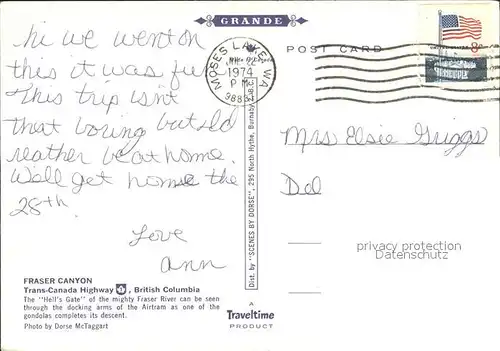 GRANDE
POST CARD
MOSES LAKE, WA
1974
PM
8c
hi we went on
this it was fu
This trip isn't
that boring but Id
reather be at home.
We'll get home the
28th.
Love
Ann
Mrs Elsie Griggs
FRASER CANYON
Trans-Canada Highway 1, British Columbia
The "Hell's Gate" of the mighty Fraser River can be seen
through the docking arms of the Airtram as one of the
gondolas completes its descent.
Photo by Dorse McTaggart
Dist. by "SCENES BY DORSE", 295 North Hythe, Burnaby 2, B.C.
A
Traveltime
PRODUCT
privacy protection
akpool.de